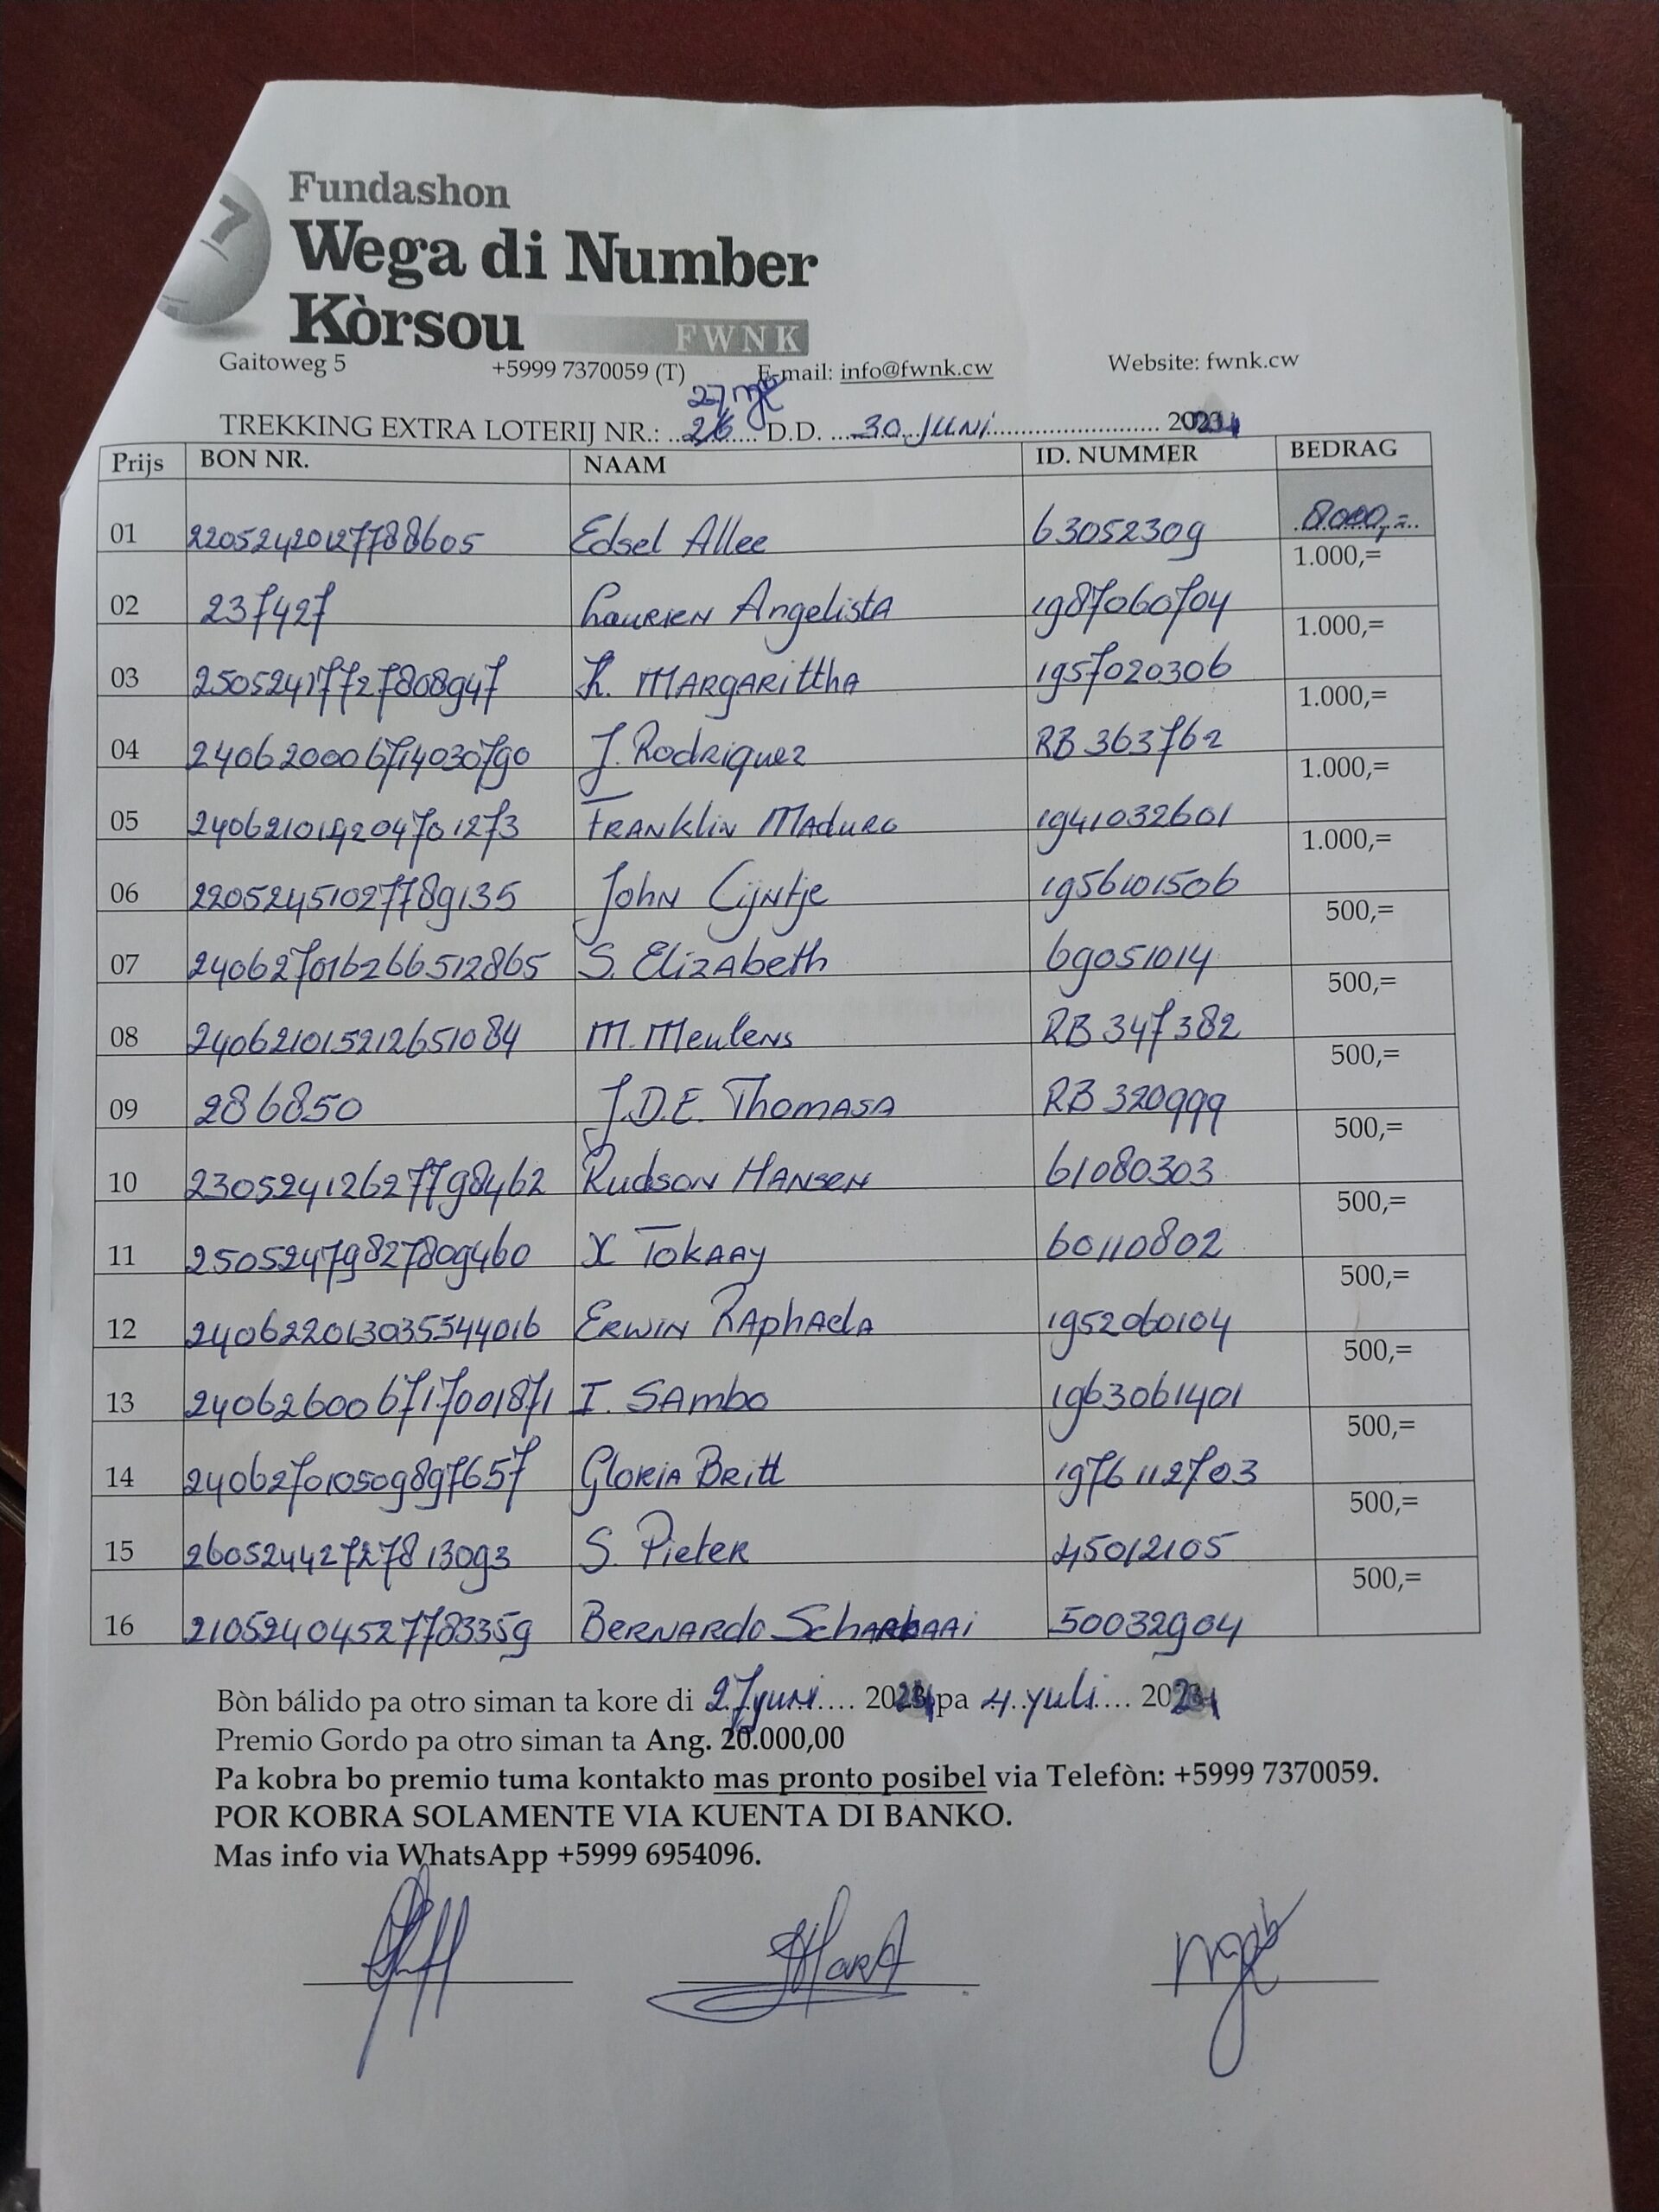 7
Fundashon
Wega di Number
Kòrsou
FWNK
Gaitoweg 5 +5999 7370059 (T) E-mail: info@fwnk.cw Website: fwnk.cw
27
TREKKING EXTRA LOTERIJ NR.: 26 D.D. 30 JUNI 2024
Prijs BON NR. NAAM ID. NUMMER BEDRAG
01 22052420127788605 Edsel Allee 63052309 8000,=
02 237427 Laurien Angelista 1987060704 1.000,=
03 25052417727808947 R. Margarittha 1957020306 1.000,=
04 240620006714030790 J. Rodriquez RB 363762 1.000,=
05 240621014204701273 Franklin Maduro 1941032601 1.000,=
06 22052451027789135 John Cijntje 1956101506 1.000,=
07 240627016266512865 S. Elizabeth 69051014 500,=
08 240621015212651084 M. Meulens RB 347382 500,=
09 286850 J.D.E. Thomasa RB 320999 500,=
10 23052412627798462 Rudson Hansen 61080303 500,=
11 25052479827809460 X Tokaay 60110802 500,=
12 240622013035544016 Erwin Raphaela 1952060104 500,=
13 240626006717001871 I. Sambo 1963061401 500,=
14 240627010509897657 Gloria Britt 1976112703 500,=
15 26052442727813093 S. Pieter 45012105 500,=
16 21052404527783359 Bernardo Scharbaai 50032904 500,=
Bòn bálido pa otro siman ta kore di 27 yuni 2024 pa 4 yuli 2024
Premio Gordo pa otro siman ta Ang. 20.000,00
Pa kobra bo premio tuma kontakto mas pronto posibel via Telefòn: +5999 7370059.
POR KOBRA SOLAMENTE VIA KUENTA DI BANKO.
Mas info via WhatsApp +5999 6954096.